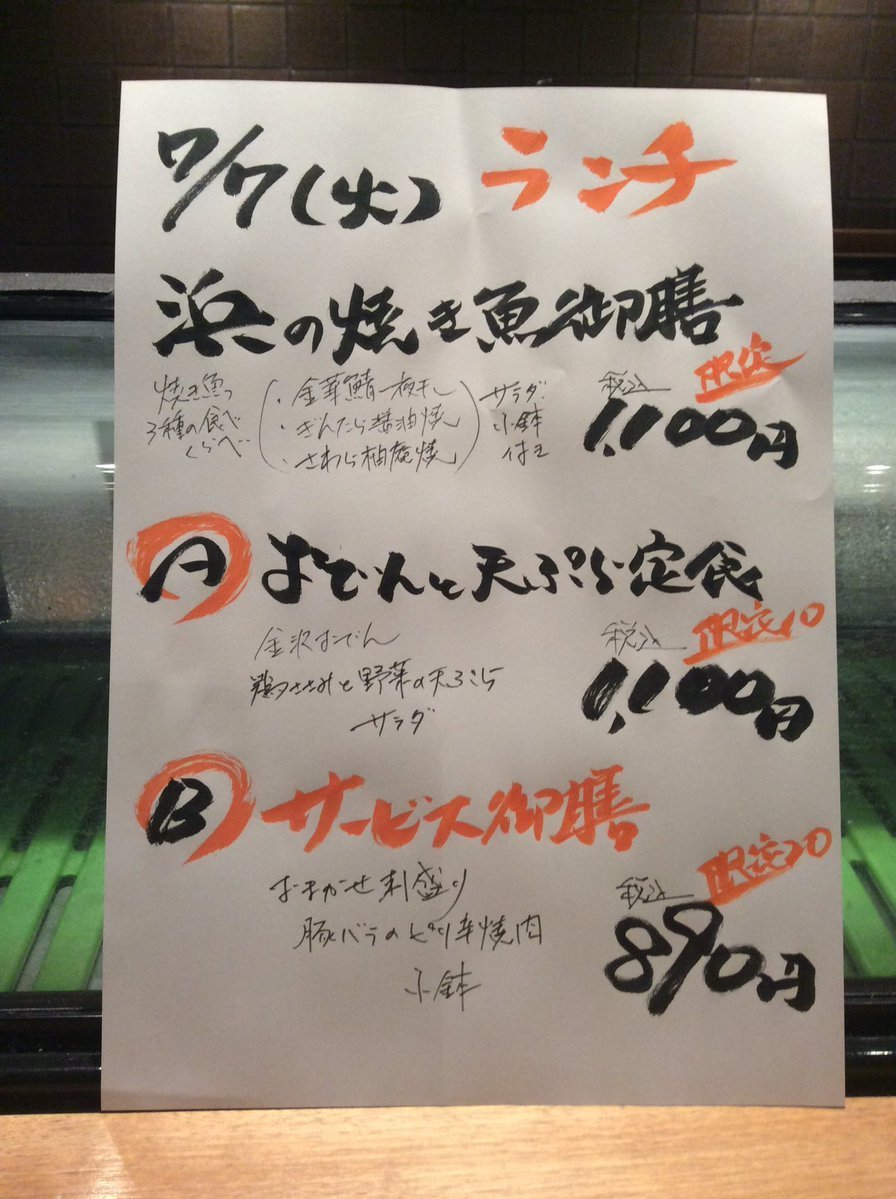 7/7(火) ランチ
浜この焼き魚御膳
限定
焼き魚
3種の食べ
くらべ
(・金華鯖一夜干し
・ぎんたら醤油焼
・さわら柚庵焼)
サラダ
小鉢
付き
税込
1,100円
A おでんと天ぷら定食
限定10
金沢おでん
鶏ささみと野菜の天ぷら
サラダ
税込
1,100円
B サービス御膳
限定20
おまかせ刺盛り
豚バラのピリ辛焼肉
小鉢
税込
890円